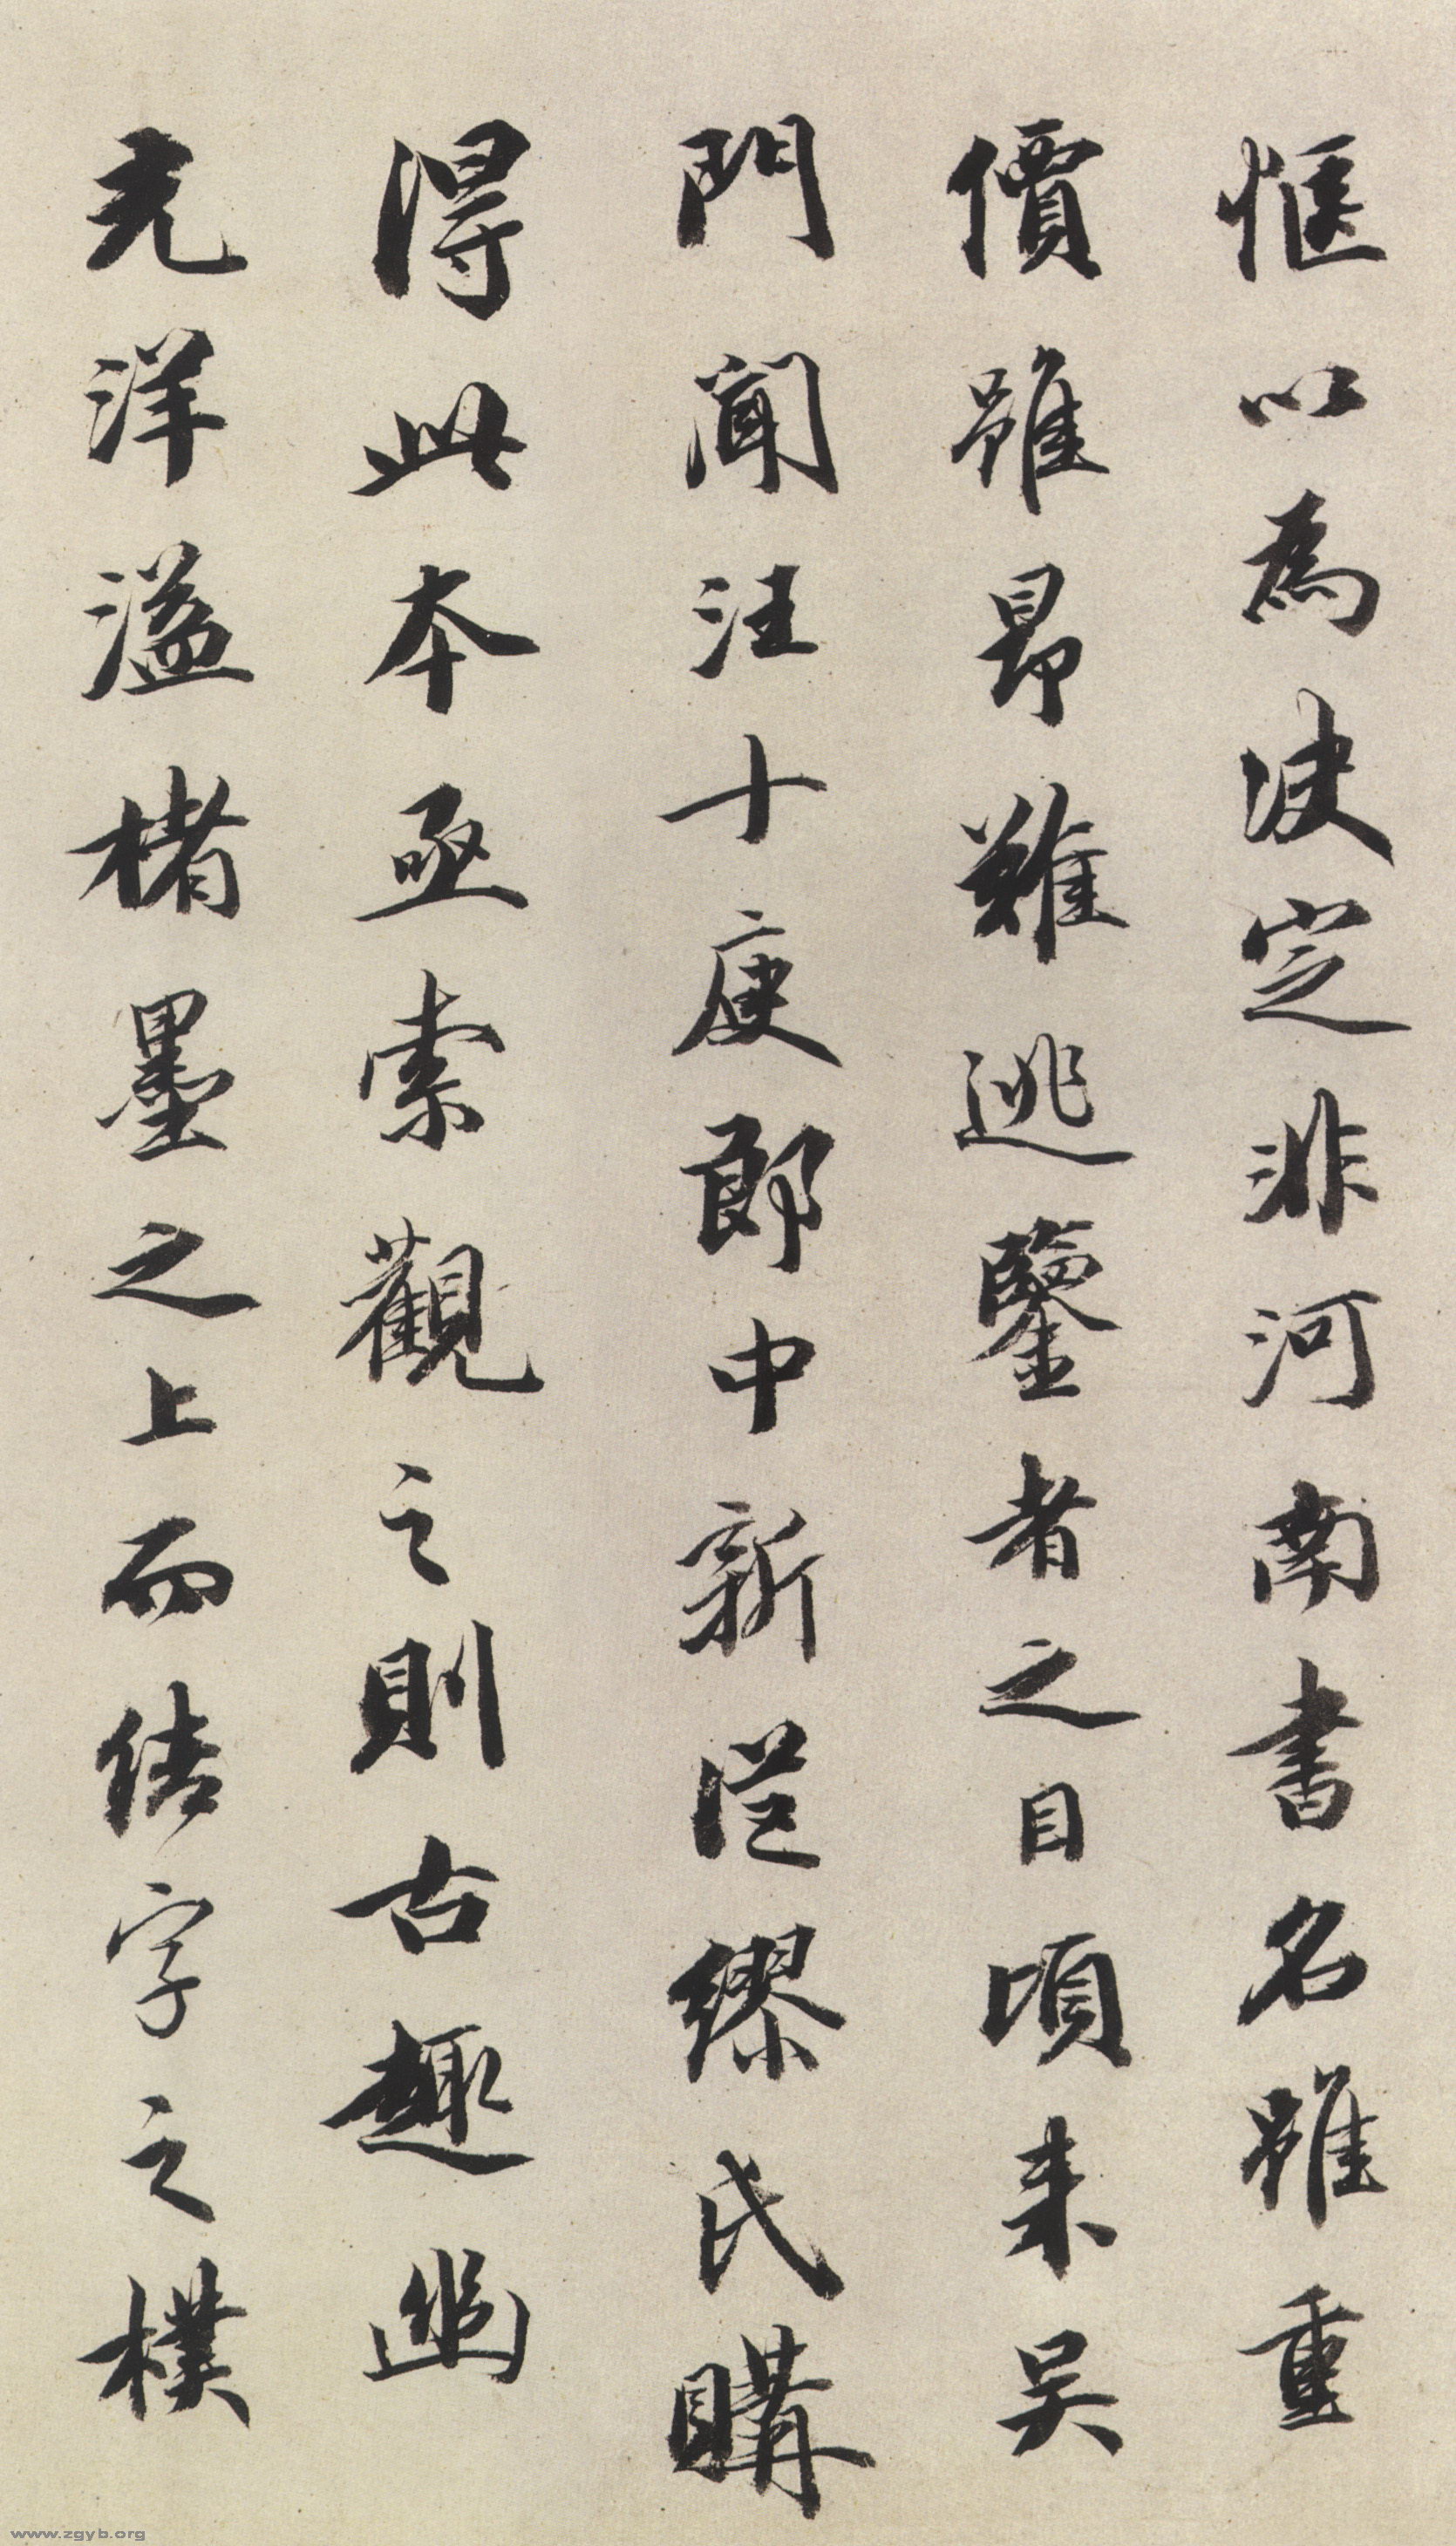 愜以為决定非河南書名雖重
價雖昂難逃鑒者之目頃来吴
門聞汪十庚郎中新從繆氏購
得此本亟索觀之則古趣幽
充洋溢楮墨之上而結字之樸
www.zgyb.org